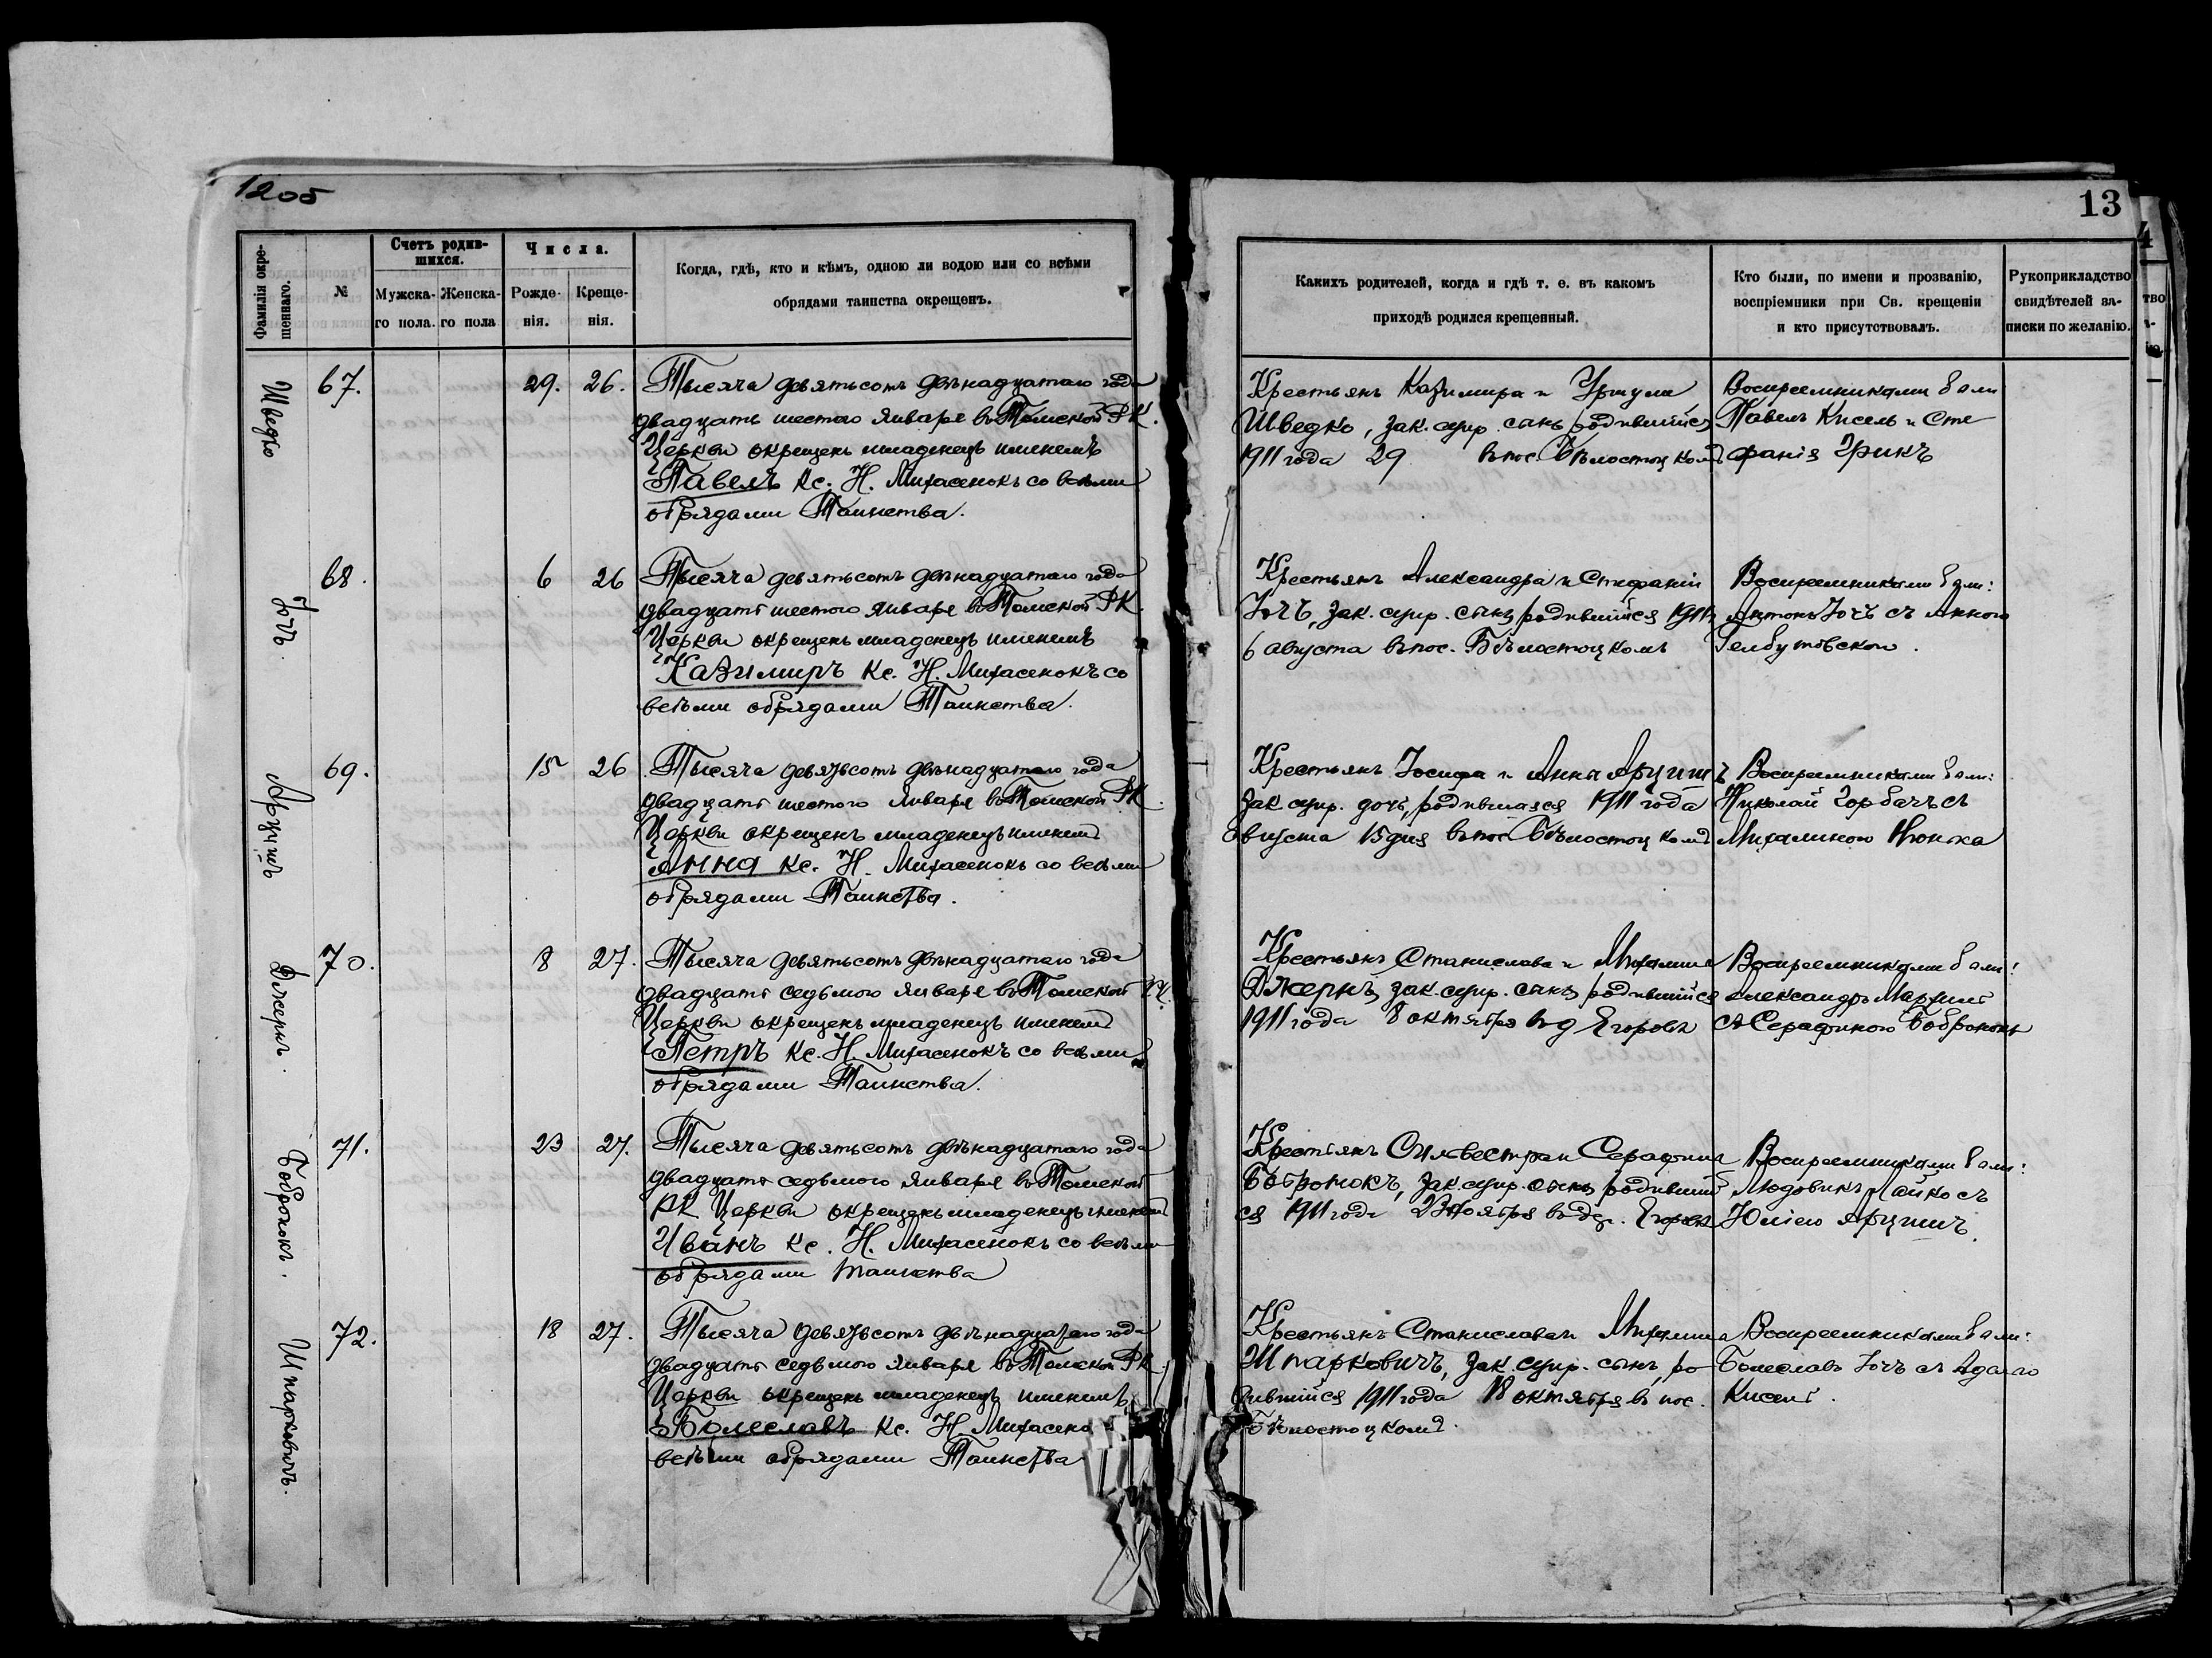 1205
13
Фамилія окре-
шеннаго.
№
Счетъ родив-
шихся.
Мужска-
го пола.
Женска-
го пола
Числа.
Рожде-
нія.
Креще-
нія.
Когда, гдѣ, кто и кѣмъ, одною ли водою или со всѣми
обрядами таинства окрещенъ.
Какихъ родителей, когда и гдѣ т. е. въ какомъ
приходѣ родился крещенный.
Кто были, по имени и прозванію,
воспріемники при Св. крещеніи
и кто присутствовалъ.
Рукоприкладство
свидѣтелей за-
писки по желанію.
Шведко
67.
29. 26.
Тысяча девятьсотъ двѣнадцатаго года
двадцать шестого Января въ Томской РК.
Церкви окрещенъ младенецъ именемъ
Павелъ Кс. Н. Михасенокъ со всѣми
обрядами Таинства.
Крестьянъ Казимира и Уршули
Шведко, зак. супр. сынъ, родившійся
1911 года 29 въ пос. Бѣлостоцкомъ
Воспреемниками были
Павелъ Кисель и Сте
фанія Грикъ
Югъ.
68.
6 26
Тысяча девятьсотъ двѣнадцатаго года
двадцать шестого Января въ Томской РК.
Церкви окрещенъ младенецъ именемъ
Казимиръ Кс. Н. Михасенокъ со
всѣми обрядами Таинства.
Крестьянъ Александра и Стефаніи
зак. супр. сынъ, родившійся 1911 г
6 августа въ пос. Бѣлостоцкомъ
Воспреемниками были:
Антонъ съ Анною
Гелбутовскою.
Арцишъ
69.
15 26
Тысяча девятьсотъ двѣнадцатаго года
двадцать шестого Января въ Томской РК.
Церкви окрещенъ младенецъ именемъ
Анна Кс. Н. Михасенокъ со всѣми
обрядами Таинства.
Крестьянъ Іосифа и Анны Арцишъ
зак. супр. дочь, родившаяся 1911 года
августа 15 дня въ пос. Бѣлостоцкомъ
Воспреемниками были:
Николай Горбачъ съ
Михалиною
Джернъ.
70.
8 27.
Тысяча девятьсотъ двѣнадцатаго года
двадцать седьмого Января въ Томской РК.
Церкви окрещенъ младенецъ именемъ
Петръ Кс. Н. Михасенокъ со всѣми
обрядами Таинства.
Крестьянъ Станислава и Михалины
Джернъ, зак. супр. сынъ, родившійся
1911 года 8 октября въ д Егоровк
Воспреемниками были:
Александръ
съ Серафиною Бобронокъ
Бобронокъ.
71.
23 27.
Тысяча девятьсотъ двѣнадцатаго года
двадцать седьмого Января въ Томской
РК Церкви окрещенъ младенецъ именемъ
Иванъ Кс. Н. Михасенокъ со всѣми
обрядами таинства
Крестьянъ Сильвестра и Серафины
Бобронокъ, зак. супр. сынъ, родившій
ся 1911 года 23 Ноября въ д. Егоровк
Воспреемниками были:
Людовикъ Лайко съ
Юліею Арцишъ.
Шпарковичъ.
72.
18 27.
Тысяча девятьсотъ двѣнадцатаго года
двадцать седьмого Января въ Томской РК.
Церкви окрещенъ младенецъ именемъ
Болеславъ Кс. Н. Михасено
всѣми обрядами Таинства
Крестьянъ Станислава и Михалины
Шпарковичъ, зак. супр. сынъ, ро
дившійся 1911 года 18 октября въ пос.
Бѣлостоцкомъ.
Воспреемниками были:
Болеславъ съ Адаею
Кисель.